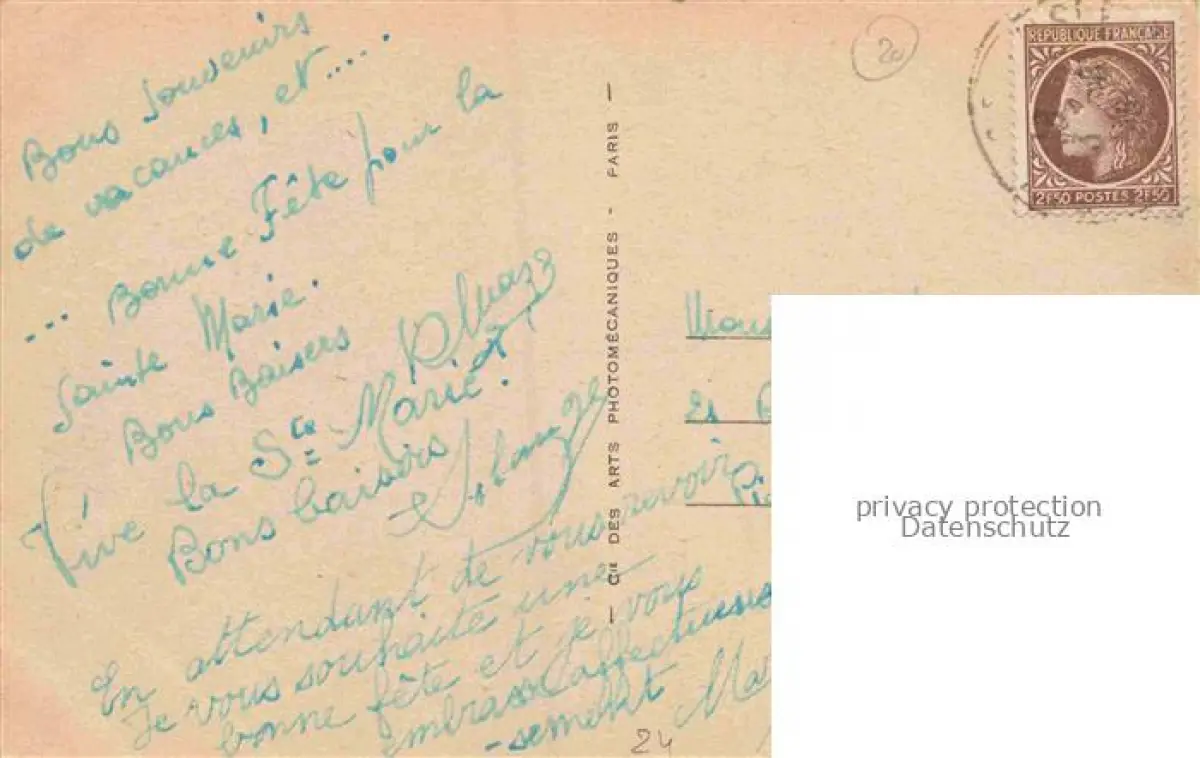 Bons Souvenirs
de vacances, et.....
... Bonne Fête pour la
Sainte Marie.
Bons Baisers
Vive la Ste Marie!
Bons baisers
Solange
En attendant de vous revoir
Je vous souhaite une
bonne fête et je vous
embrasse affectueuse
-sement
24
— Cie DES ARTS PHOTOMÉCANIQUES - PARIS —
20
RÉPUBLIQUE FRANÇAISE
2F50 POSTES 2F50
et
privacy protection
Datenschutz